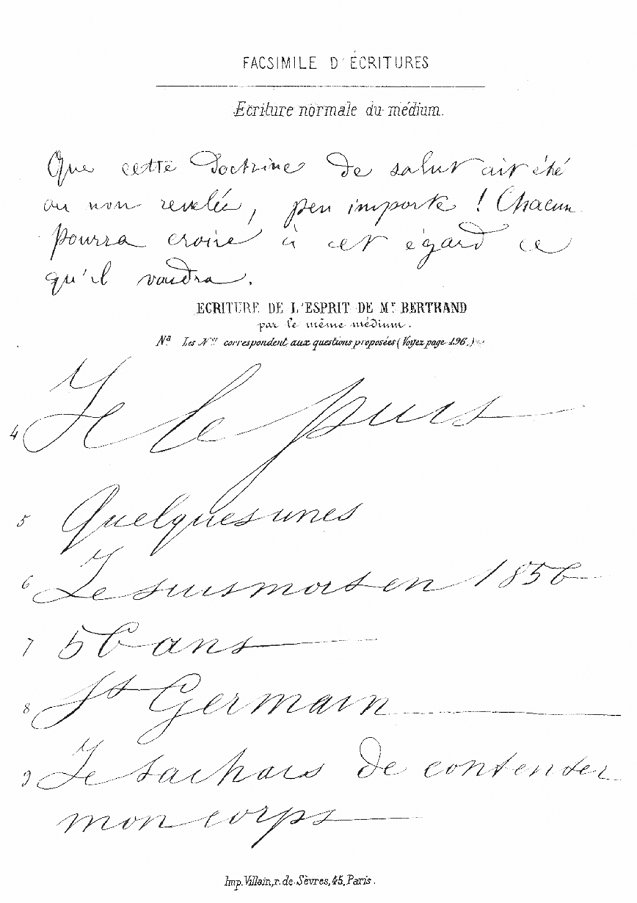 FACSIMILE D'ÉCRITURES
Ecriture normale du médium.
Que cette Doctrine de salut ait été
ou non revelée, peu importe ! Chacun
pourra croire à cet égard ce
qu'il voudra.
ECRITURE DE L'ESPRIT DE Mr. BERTRAND
par le même médium.
Na Les Nos correspondent aux questions proposées (Voyez page 196.)
4 Je le puis
5 Quelques unes
6 Je suis mort en 1856
7 56 ans
8 St Germain
9 Je tachais de contenter
mon corps
Imp. Villain, r. de Sèvres, 45, Paris.